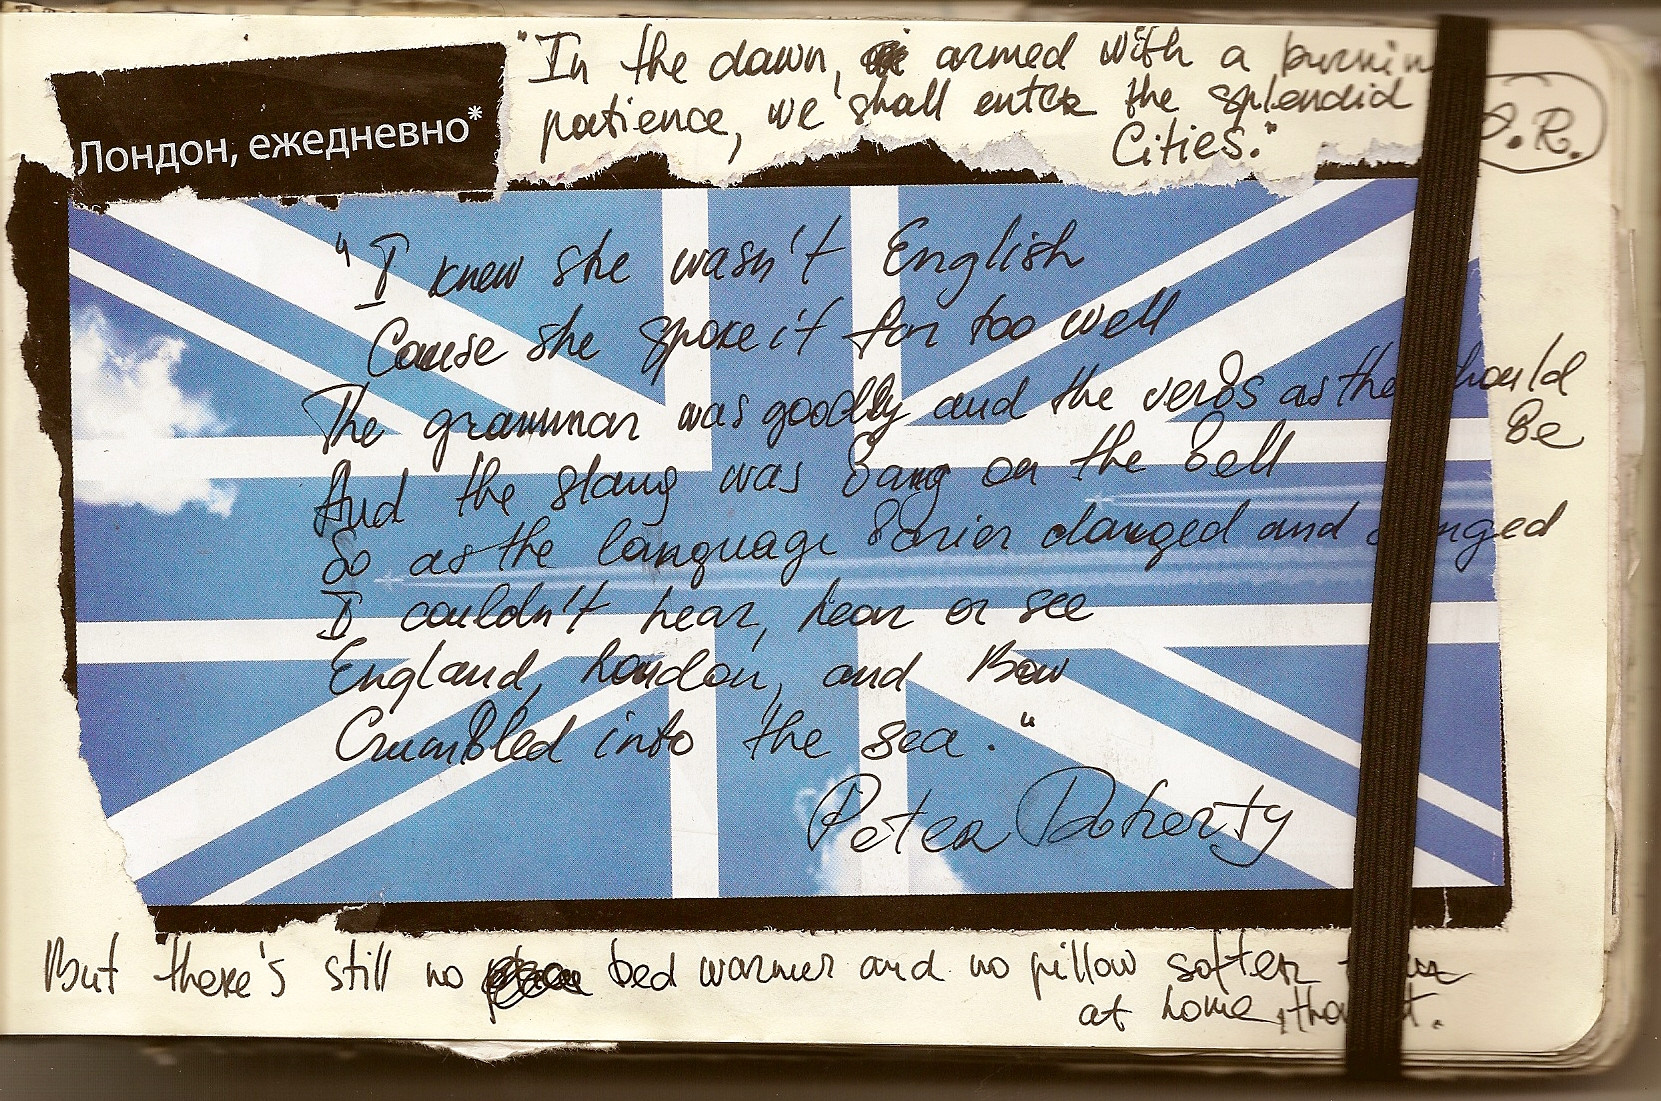 "In the dawn, armed with a burnin
patience, we shall enter the splendid
Cities."
.R.
Лондон, ежедневно*
"I knew she wasn't English
Cause she spoke it far too well
The grammar was goodly and the verbs as the hould
Be
And the slang was bang on the bell
So as the language barier clanged and nged
I couldn't hear, hear or see
England, London, and Bow
Crumbled into the sea."
Peter Doherty
But there's still no bed warmer and no pillow softer
at home,